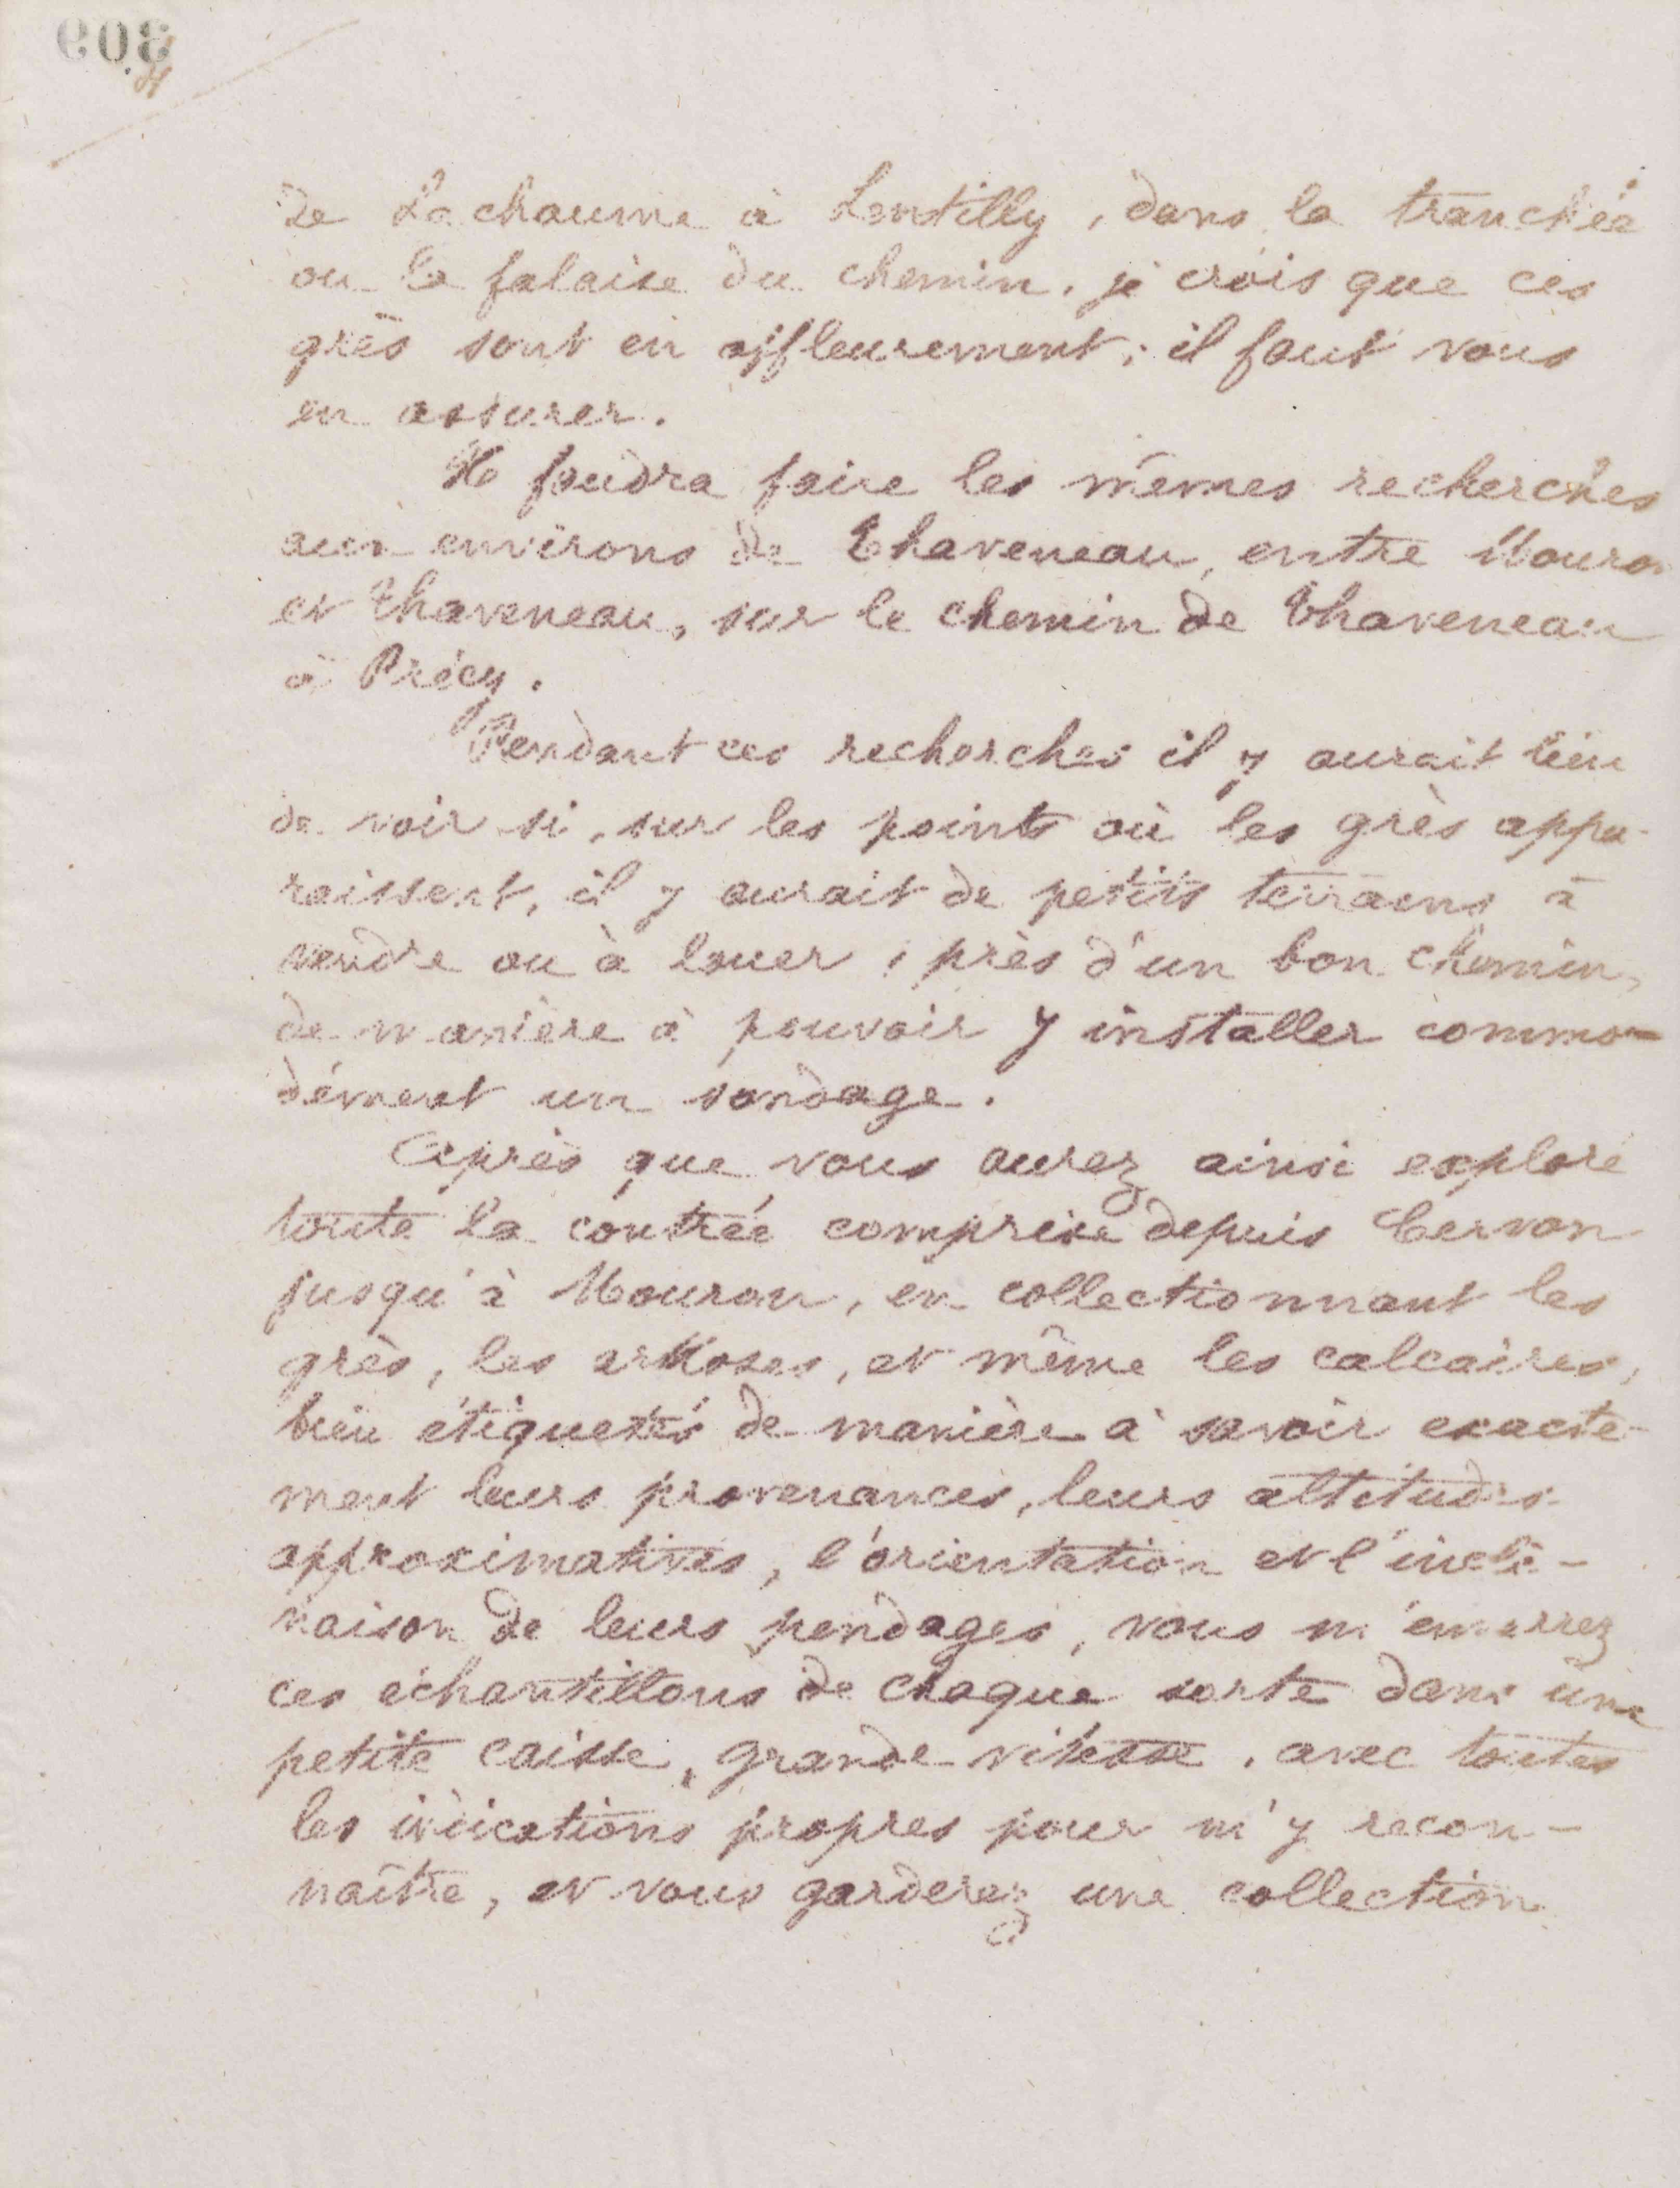 309
de Lachaume à Lentilly, dans la tranchée
ou la falaise du chemin, je crois que ces
grès sont en affleurement; il faut vous
en assurer.
Il faudra faire les mêmes recherches
aux environs de Thaveneau, entre Mouron
et Thaveneau, sur le chemin de Thaveneau
à Précy.
Pendant ces recherches il y aurait lieu
de voir si, sur les points où les grès appa-
raissent, il y aurait de petits terrains à
vendre ou à louer, près d'un bon chemin,
de manière à pouvoir y installer commo-
dément un sondage.
Après que vous aurez ainsi exploré
toute la contrée comprise depuis Cervon
jusqu'à Mouron, en collectionnant les
grès, les arkoses, et même les calcaires,
bien étiquetés de manière à savoir exacte-
ment leurs provenances, leurs altitudes
approximatives, l'orientation et l'incli-
naison de leurs pendages, vous m'enverrez
ces échantillons de chaque sorte dans une
petite caisse, grande vitesse, avec toutes
les indications propres pour m'y recon-
naître, et vous garderez une collection